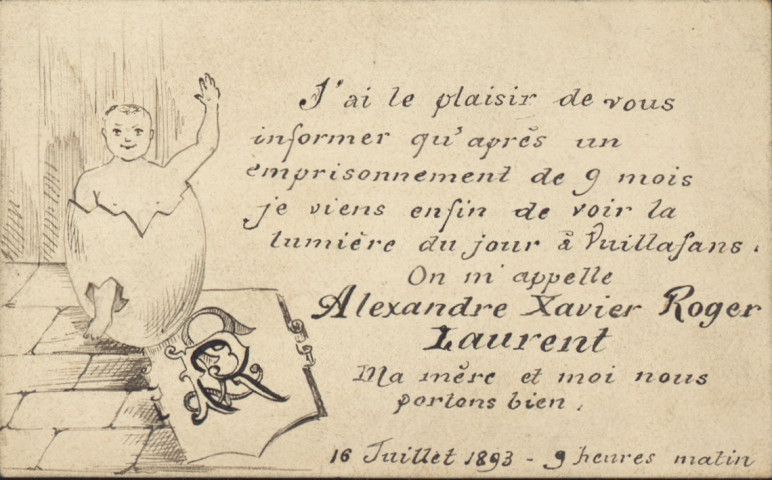 J'ai le plaisir de vous
informer qu'après un
emprisonnement de 9 mois
je viens enfin de voir la
lumière du jour à Vuillafans.
On m'appelle
Alexandre Xavier Roger
Laurent
Ma mère et moi nous
portons bien.
16 Juillet 1893 - 9 heures matin